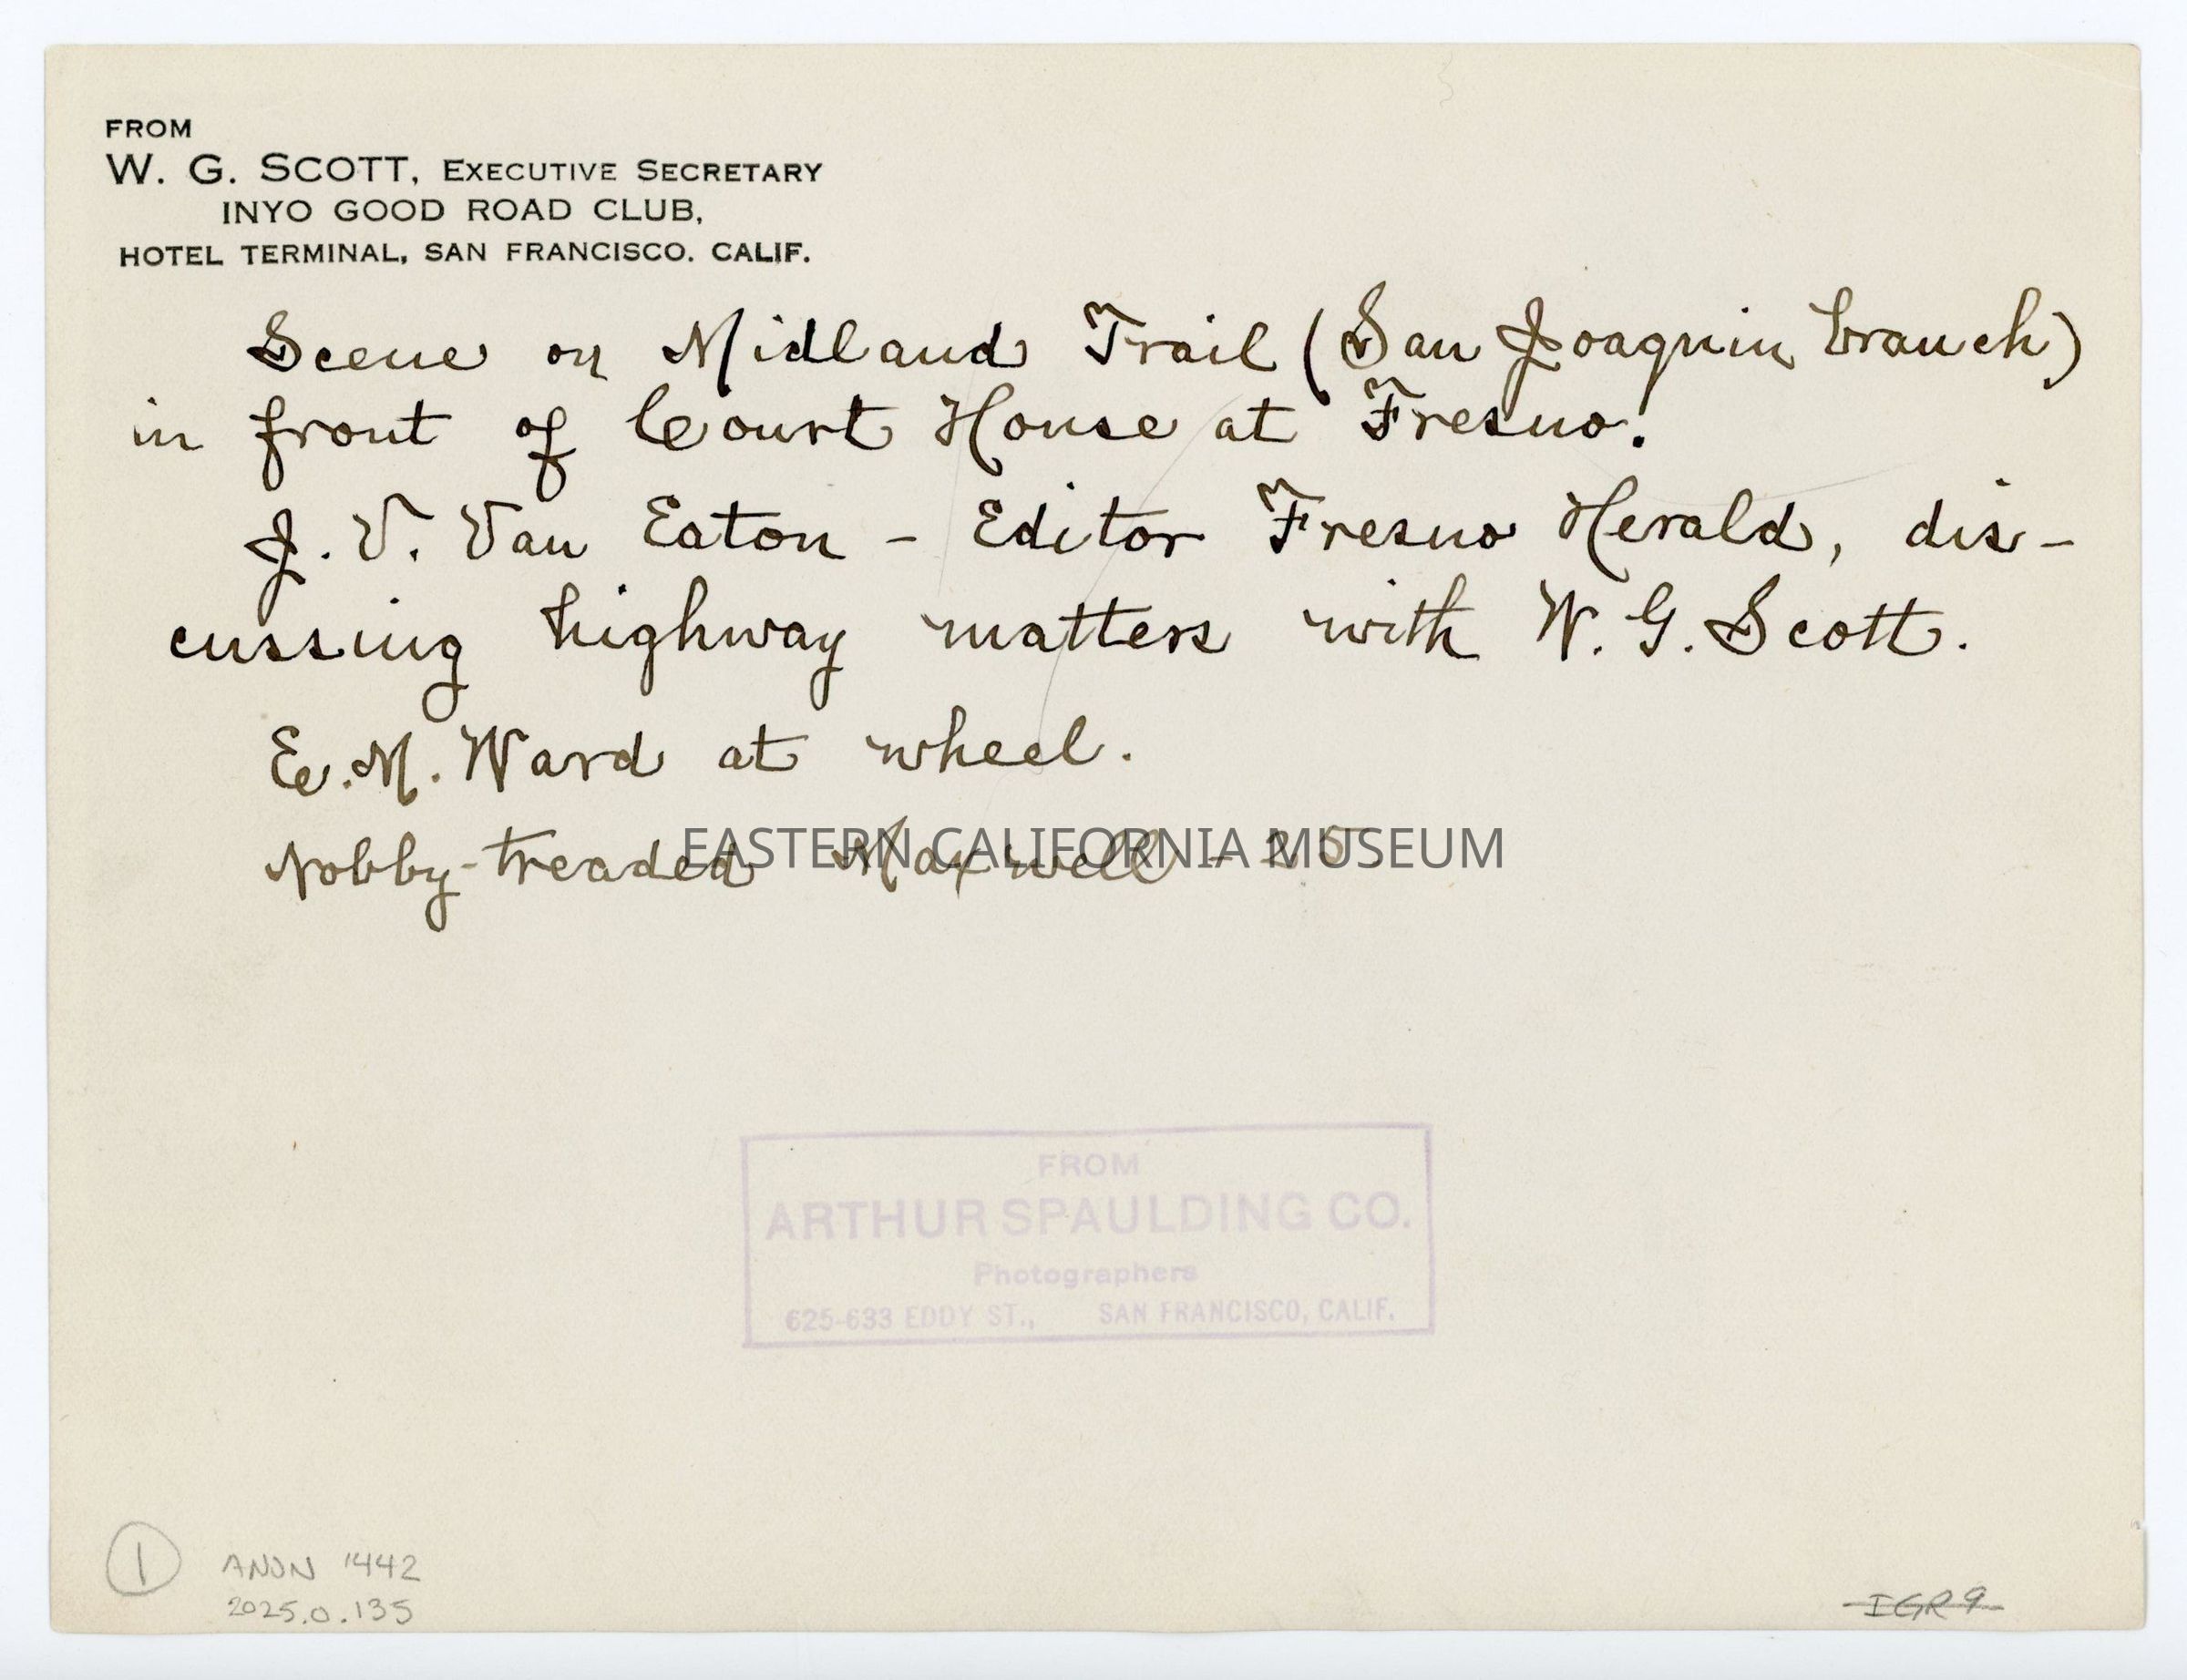 FROM
W. G. SCOTT, EXECUTIVE SECRETARY
INYO GOOD ROAD CLUB,
HOTEL TERMINAL, SAN FRANCISCO. CALIF.
Scene on Midland Trail (San Joaquin branch)
in front of Court House at Fresno.
J. V. Van Eaton - Editor Fresno Herald, dis-
cussing highway matters with W. G. Scott.
E. M. Ward at wheel.
Nobby-treaded Maxwell - 25
EASTERN CALIFORNIA MUSEUM
FROM
ARTHUR SPAULDING CO.
Photographers
625-633 EDDY ST., SAN FRANCISCO, CALIF.
1
ANON 1442
2025.0.135
IGR 9